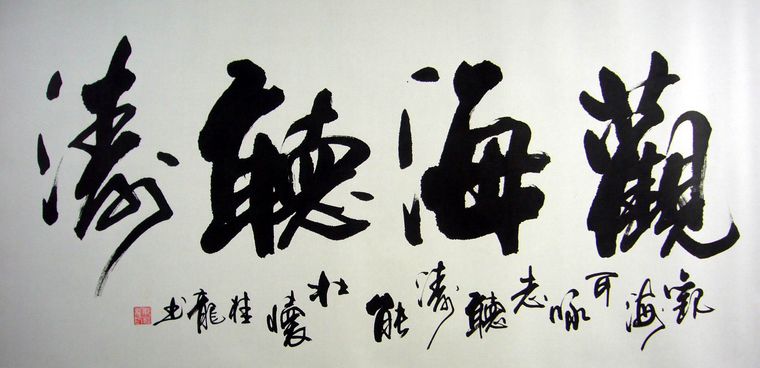 觀海聽濤
觀海可咏志聽濤能壯懷桂龍书